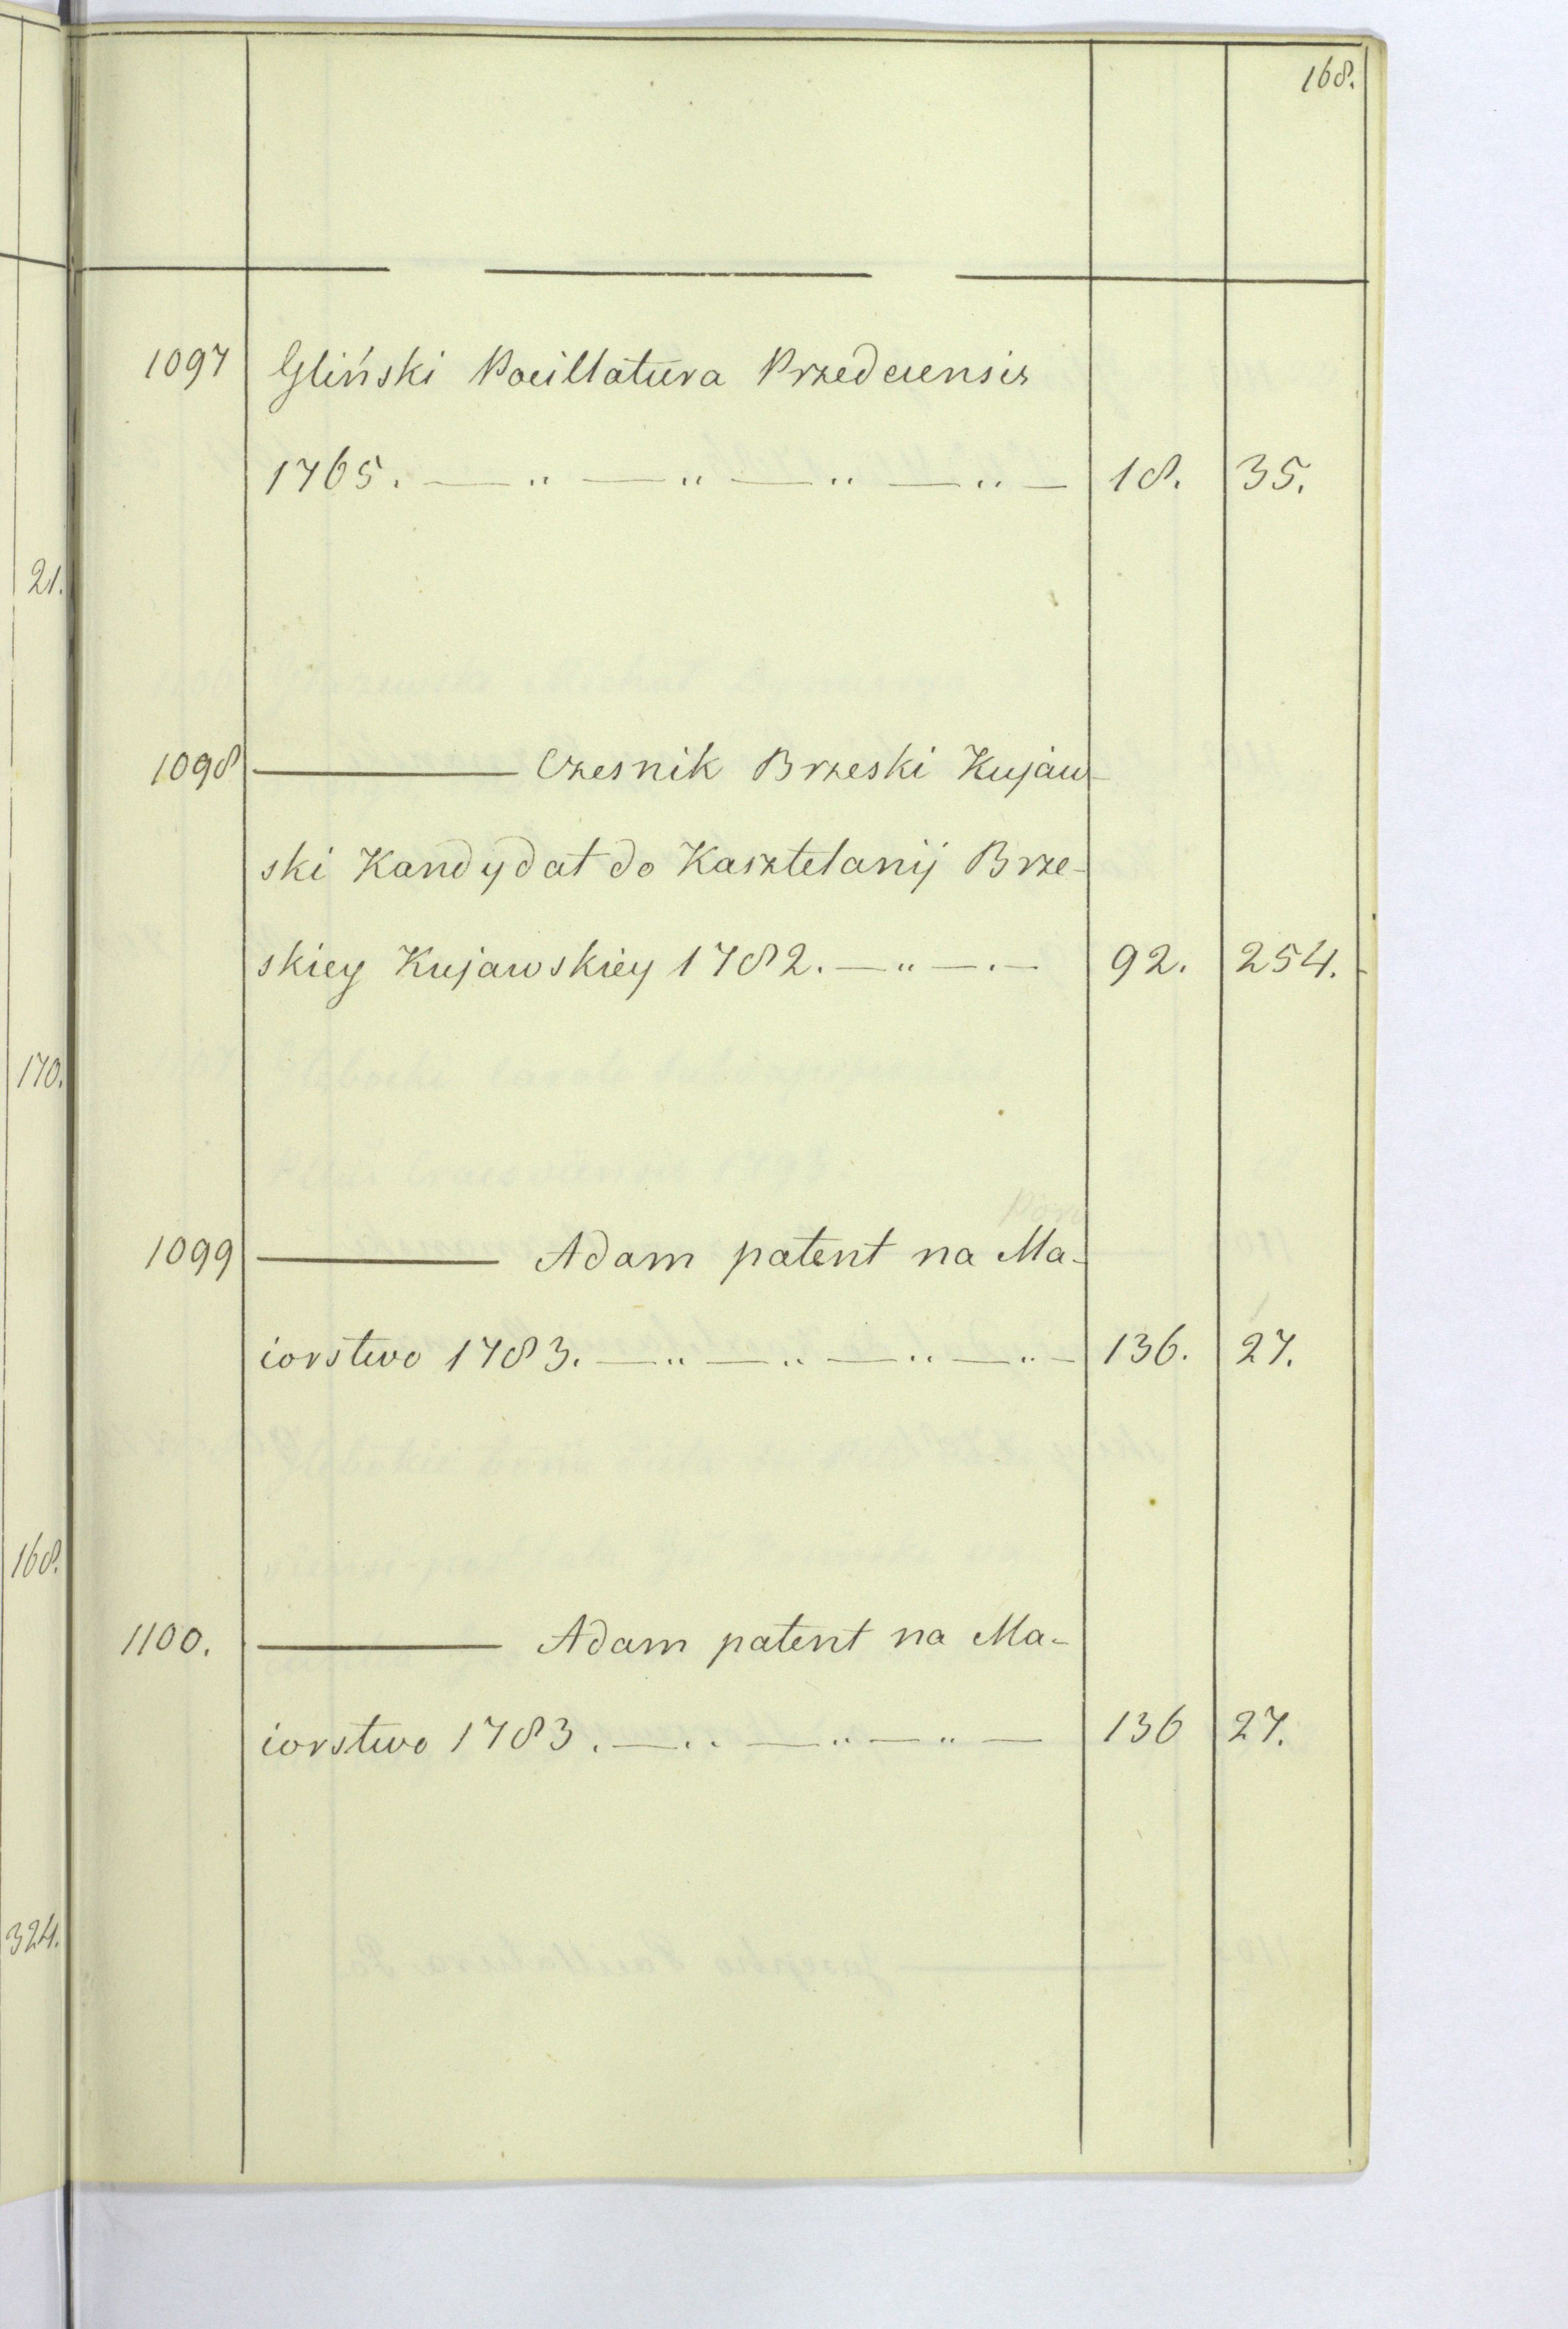 168.
1097 Gliński Pocillatura Przedecensis
1765. — " — " — " — " — 18. 35.
21.
1098 ——— Czesnik Brzeski Kujaw-
ski Kandydat do Kasztelanij Brze-
skiey Kujawskiey 1782. — " — . — 92. 254.
170.
1099 ——— Adam patent na Ma-
iorstwo 1783. — " — " — " — " — 136. 27.
168.
1100. ——— Adam patent na Ma-
iorstwo 1783. — " — " — " — 136 27.
324.